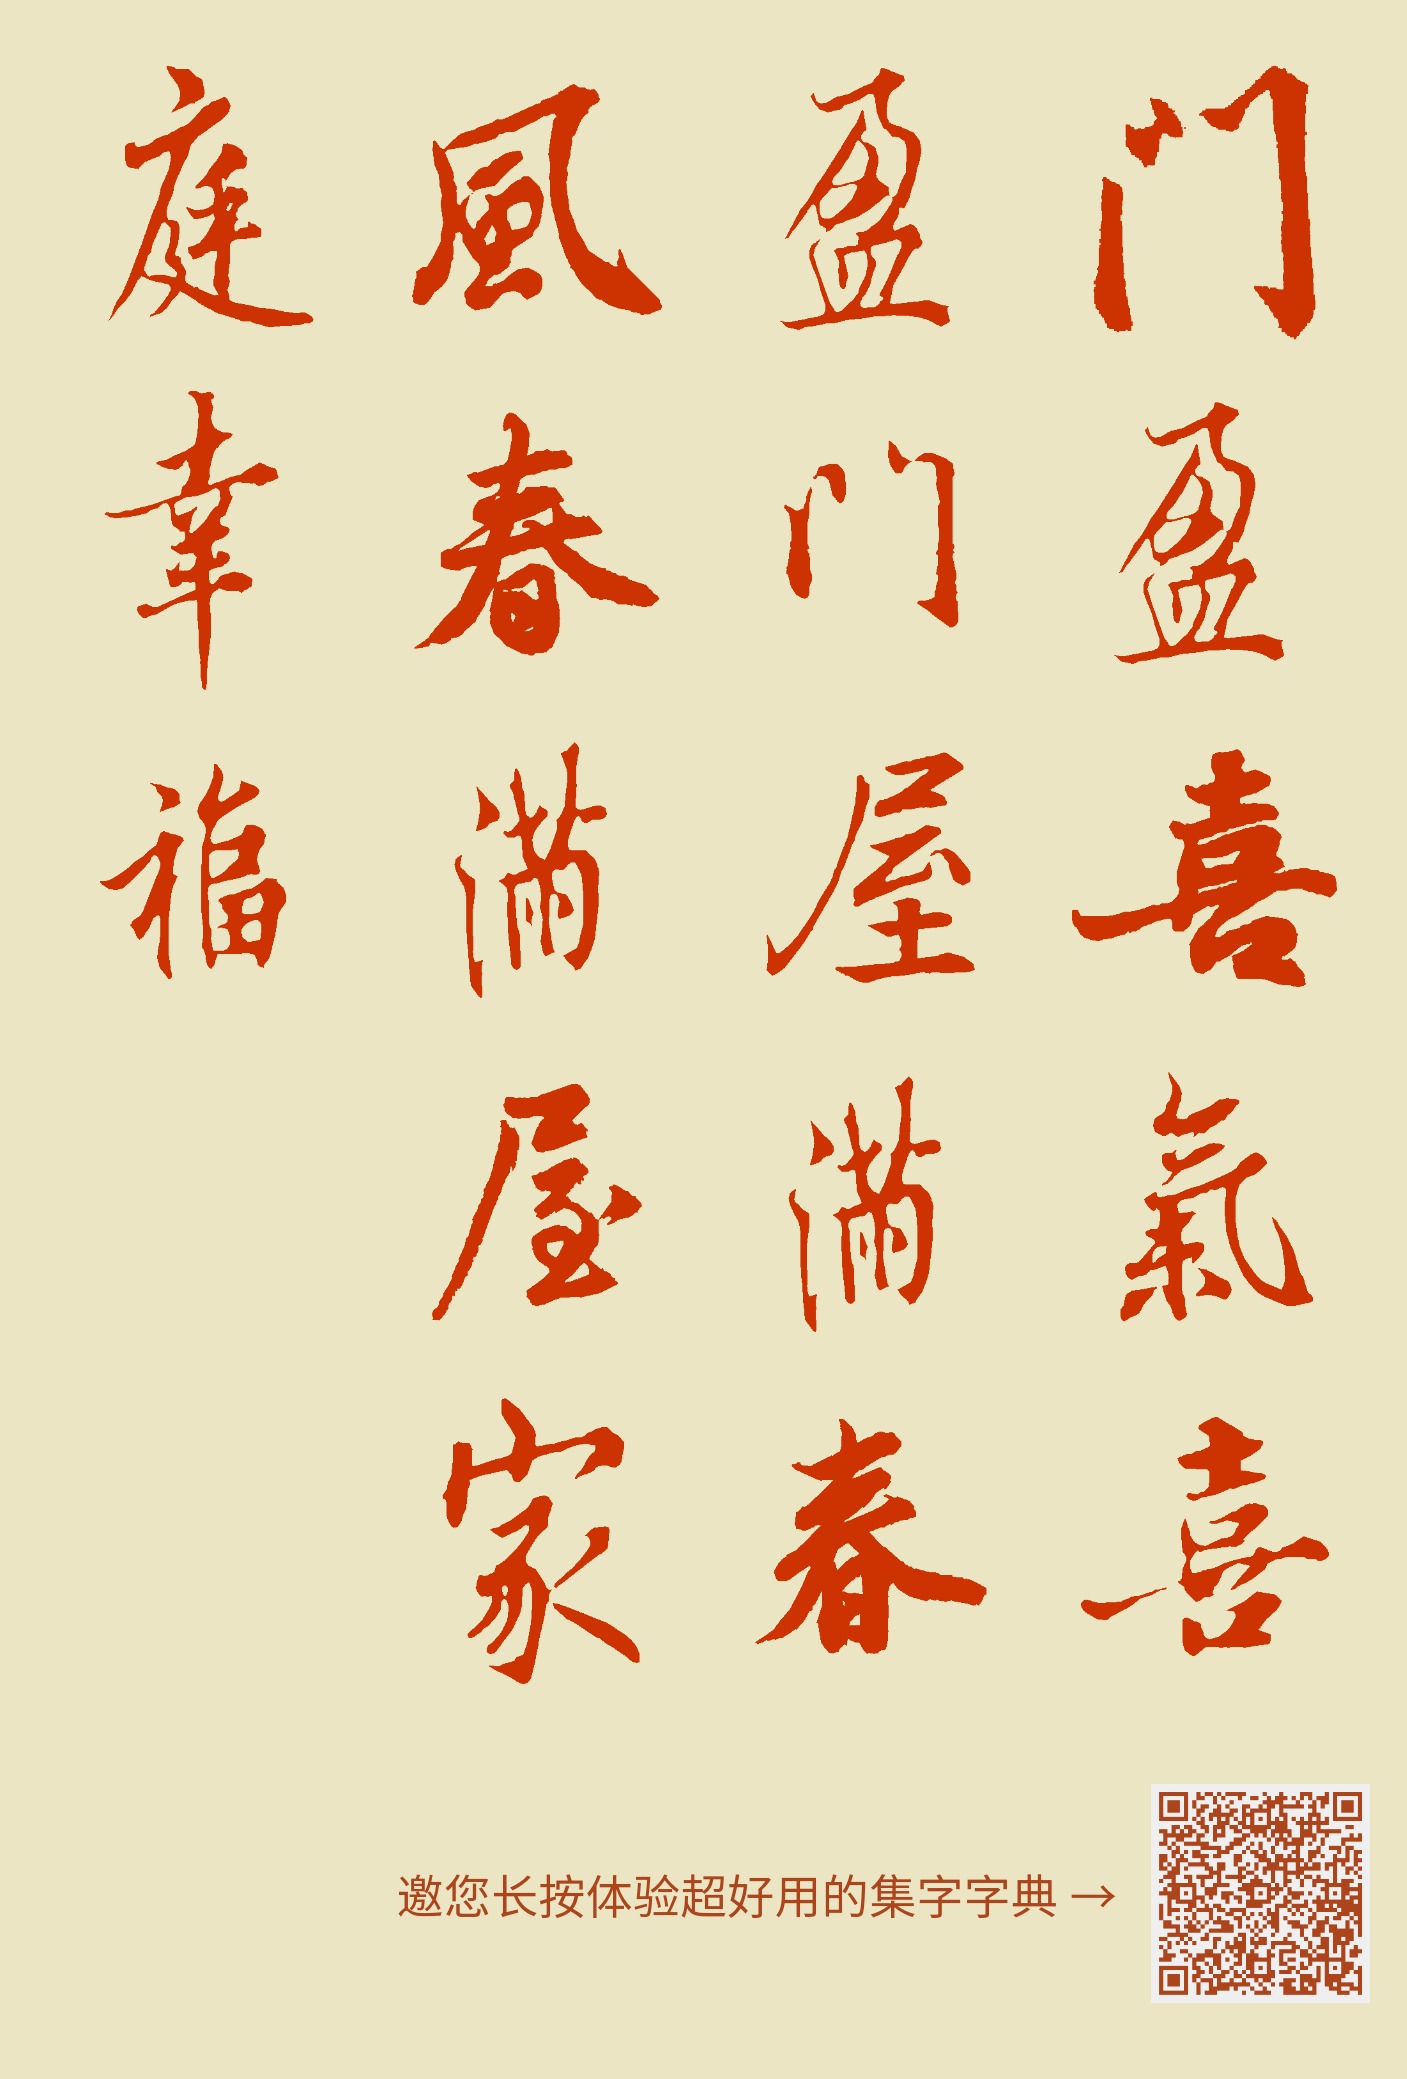 门盈喜氣喜
盈门屋滿春
風春滿屋家
庭幸福
邀您长按体验超好用的集字字典 →